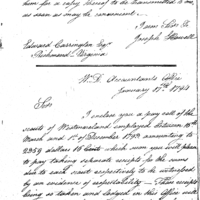 him for a copy thereof to be transmitted to me,
as soon as may be convenient.
I am Sir &c
Joseph Howell
Edward Carrington Esqr
Richmond Virginia
W.D. Accountants Office
January 17th 1794
Sir
I enclose you a pay roll of the
scouts of employed between
March and 1st of December 1793 amounting to
2359 dollars 16 Cents which you will please
to pay taking separate receipts for the sums
due to each scout respectively to be witnessed
by an evidence of respectability — These receipts
being so taken and lodged in this Office will